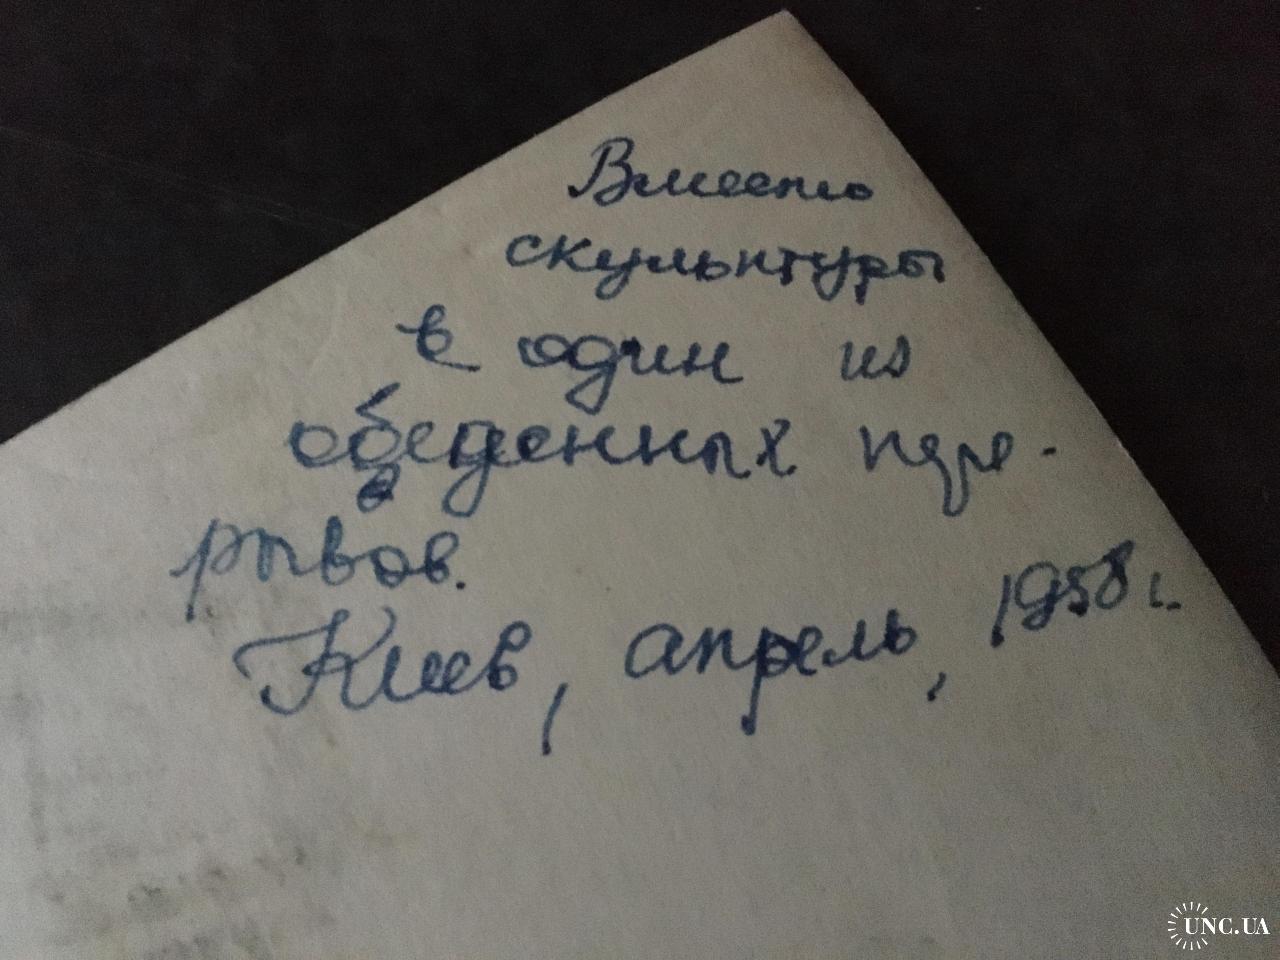 Вместо
скульптуры
в один из
обеденных пере-
рывов.
Киев, апрель, 1958 г.
UNC.UA